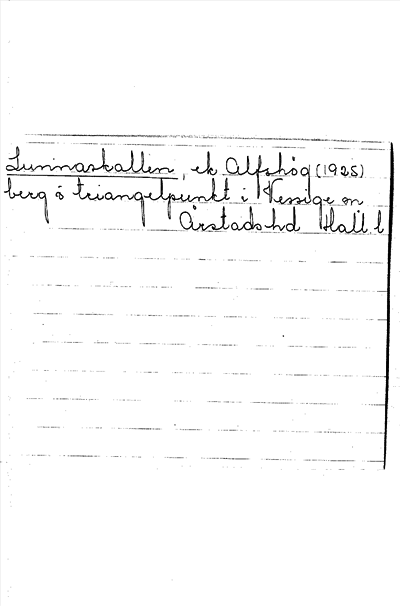 Lunnaskallen, ek Alfshög (1925)
berg o triangelpunkt i Vessige sn
Årstads hd Hall. l